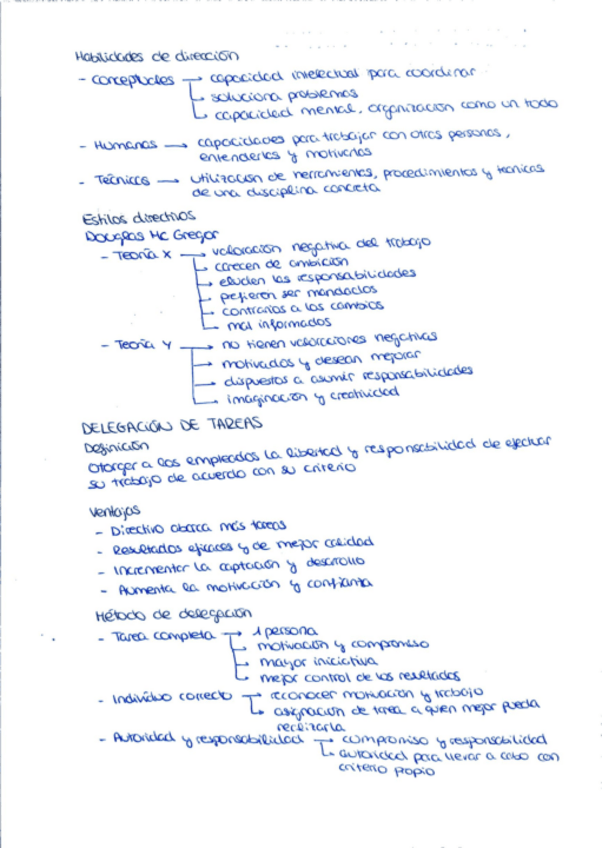 Habilidades de dirección
- Conceptuales → capacidad intelectual para coordinar
→ soluciona problemas
→ capacidad mental, organización como un todo
- Humanas → capacidades para trabajar con otras personas,
entenderlas y motivarlas
- Técnicas → utilización de herramientas, procedimientos y técnicas
de una disciplina concreta
Estilos directivos
Douglas Mc Gregor
- Teoría X → valoración negativa del trabajo
→ carecen de ambición
→ eluden las responsabilidades
→ prefieren ser mandados
→ contrarios a los cambios
→ mal informados
- Teoría Y → no tienen valoraciones negativas
→ motivados y desean mejorar
→ dispuestos a asumir responsabilidades
→ imaginación y creatividad
DELEGACIÓN DE TAREAS
Definición
Otorgar a los empleados la libertad y responsabilidad de efectuar
su trabajo de acuerdo con su criterio
Ventajas
- Directivo abarca más tareas
- Resultados eficaces y de mejor calidad
- Incrementar la captación y desarrollo
- Aumenta la motivación y confianza
Método de delegación
- Tarea completa → 1 persona
→ motivación y compromiso
→ mayor iniciativa
→ mejor control de los resultados
- Individuo correcto → reconocer motivación y trabajo
→ asignación de tarea a quien mejor pueda
realizarla
- Autoridad y responsabilidad → compromiso y responsabilidad
→ autoridad para llevar a cabo con
criterio propio